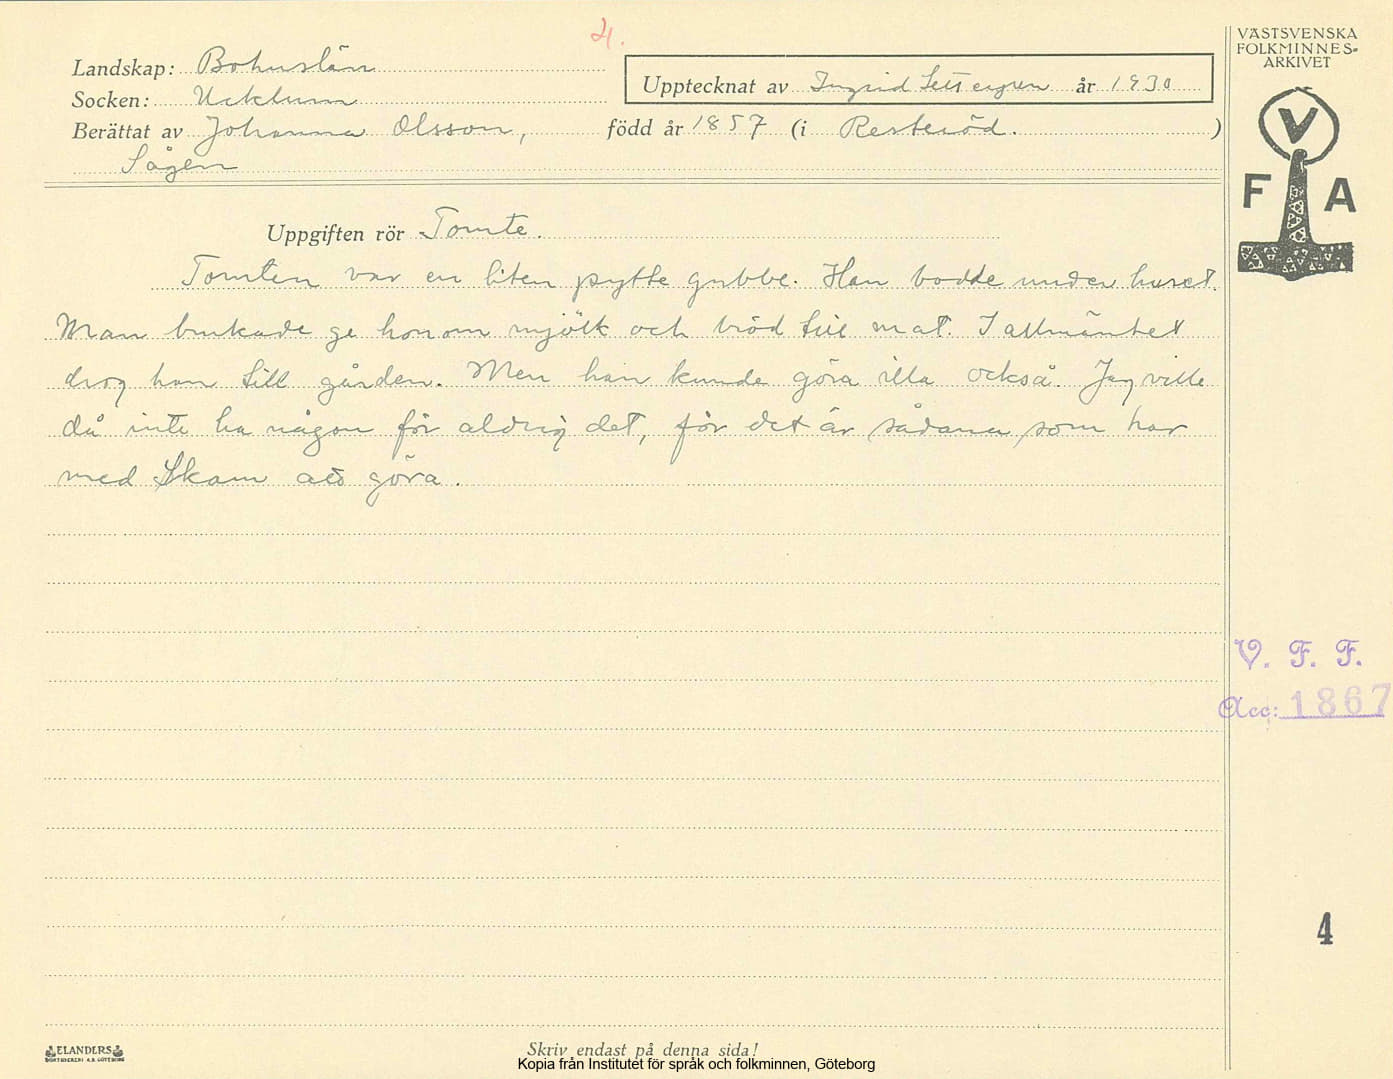 4.
VÄSTSVENSKA
FOLKMINNES-
ARKIVET
Landskap: Bohuslän
Upptecknat av Ingrid Settergren år 1930
Socken: Ucklum
Berättat av Johanna Olsson, född år 1857 (i Resteröd. )
Sågen
V
F A
Uppgiften rör Tomte.
Tomten var en liten pytte gubbe. Han bodde under huset.
Man brukade ge honom mjölk och bröd till mat. I allmänhet
drog han till gården. Men han kunde göra illa också. Jag ville
då inte ha någon för aldrig det, för det är sådana som har
med Skam att göra.
V. F. F.
Acc: 1867
4
ELANDERS
BOKTRYCKERI A.B. GÖTEBORG
Skriv endast på denna sida!
Kopia från Institutet för språk och folkminnen, Göteborg